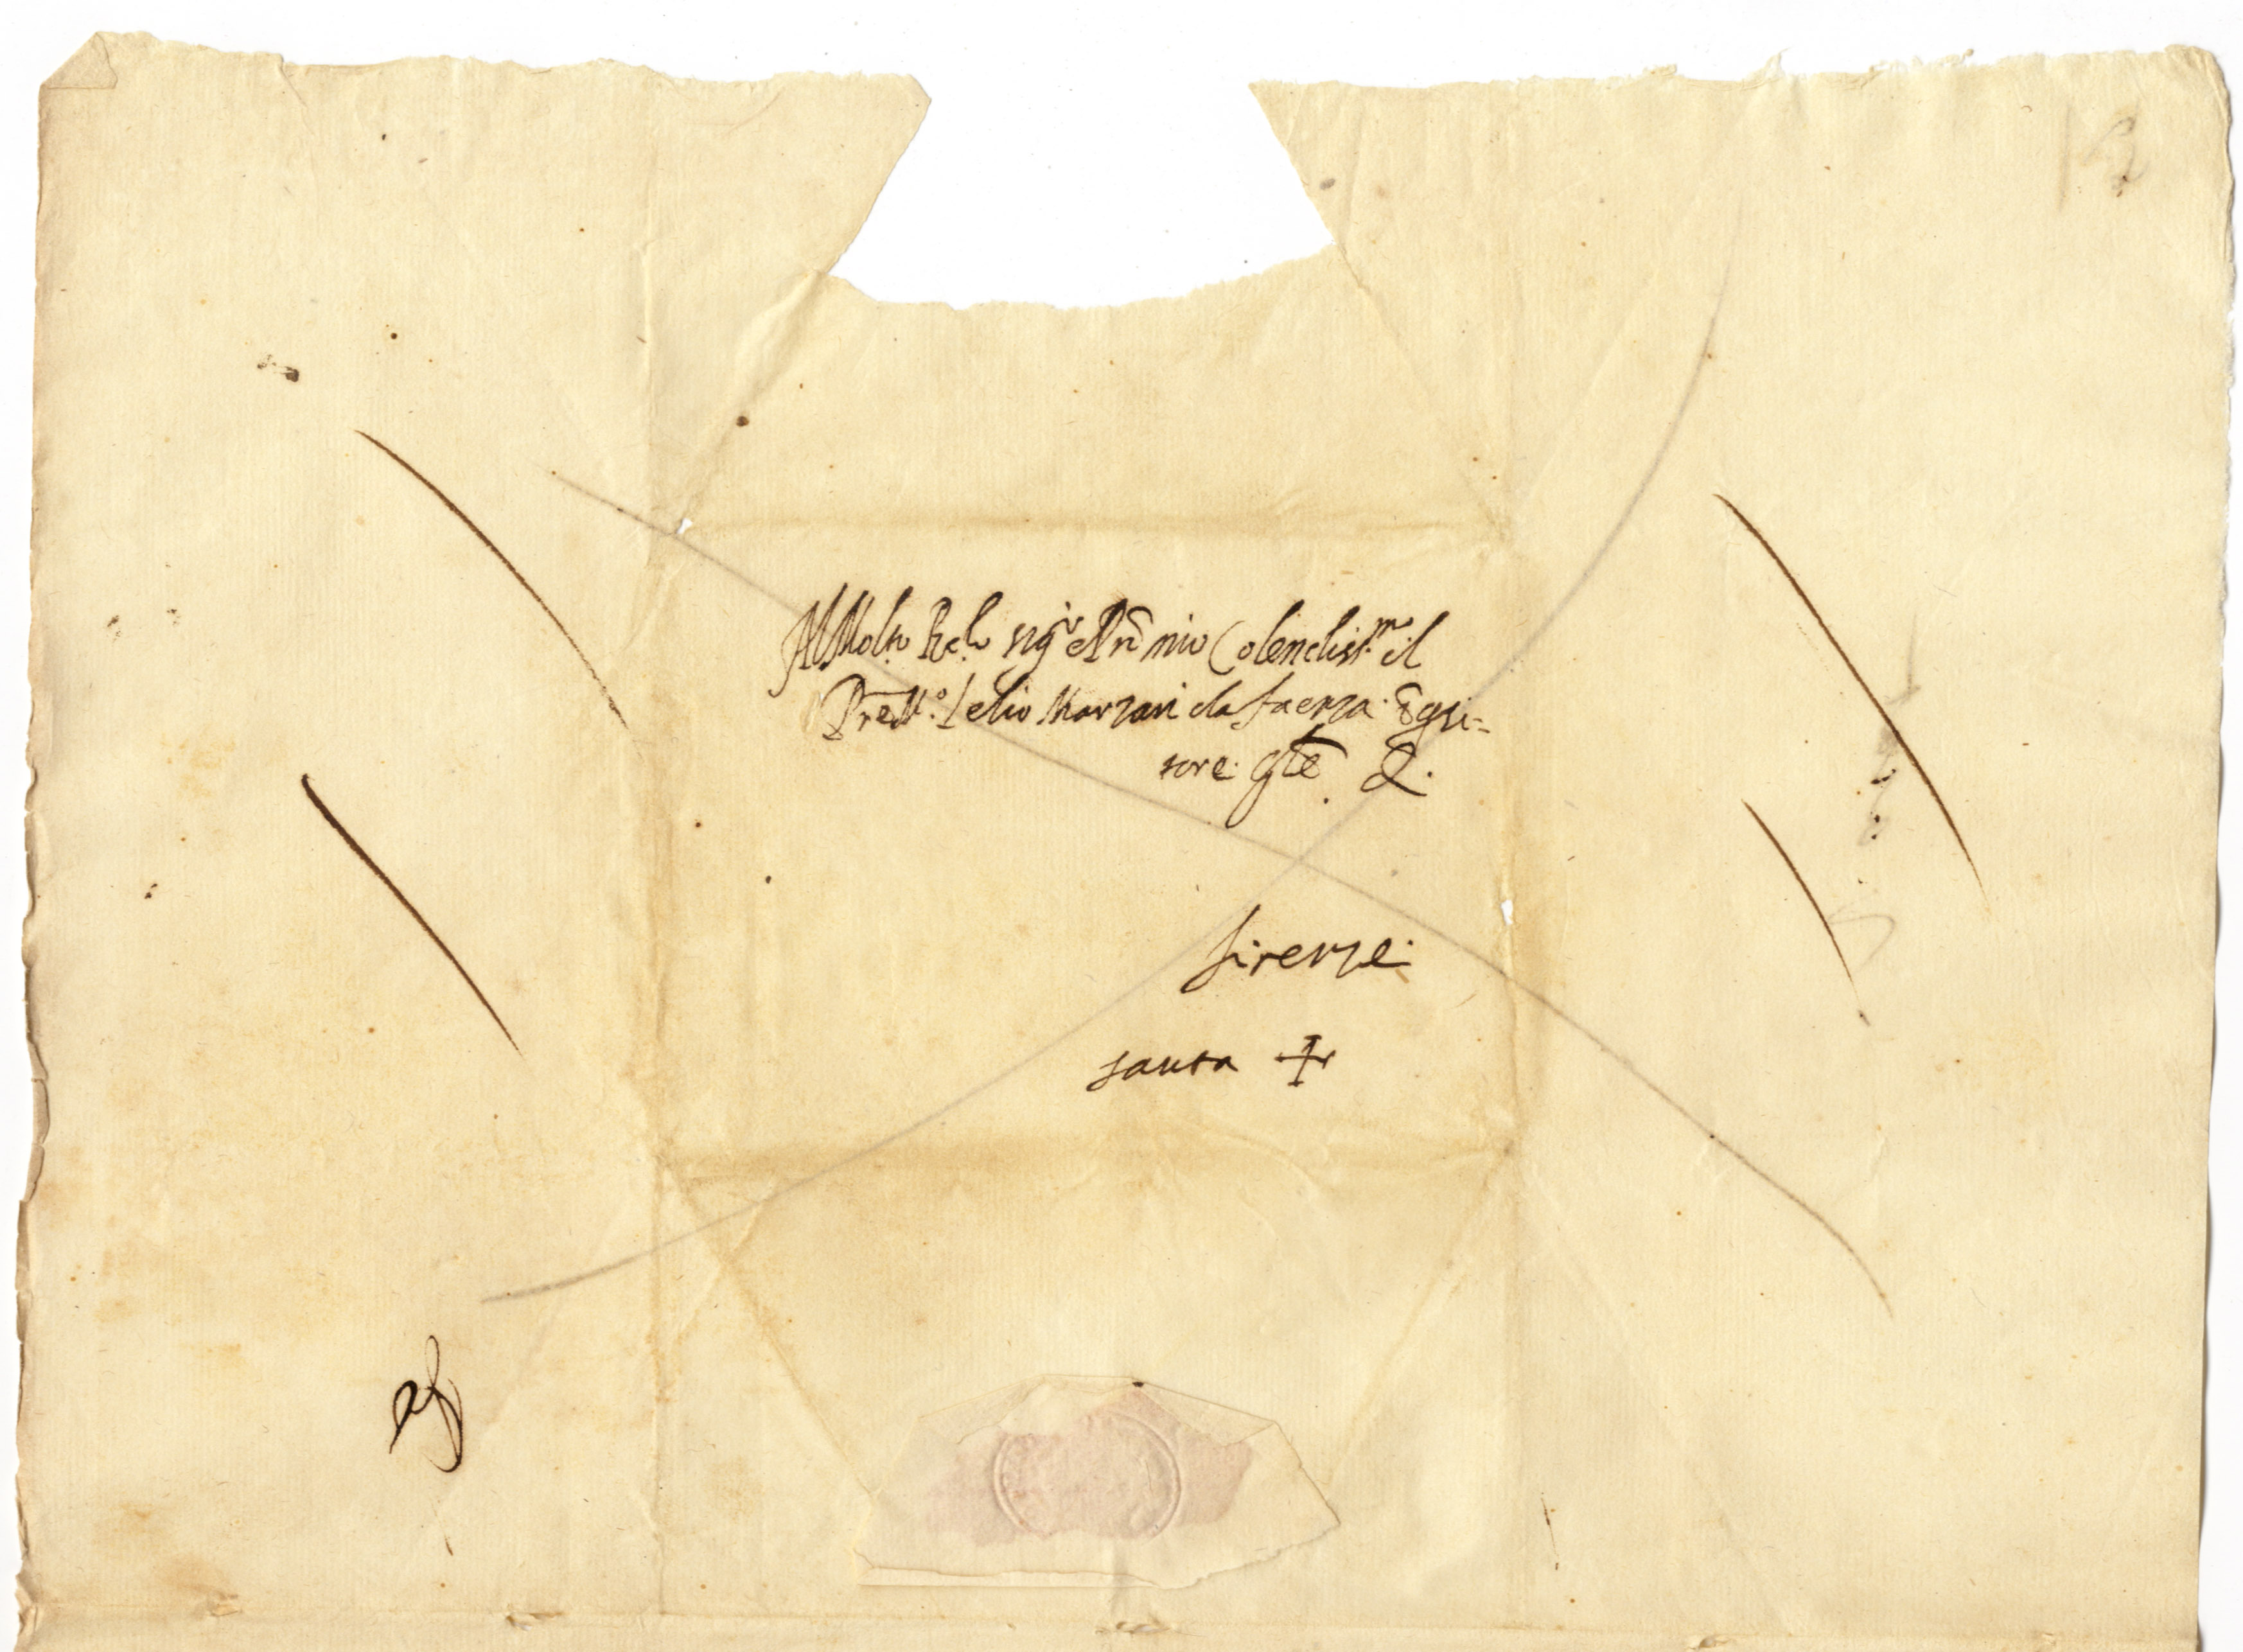 Al Molto R.do sig.r et Prōn mio Colendiss.mo il
Pre M.o Lelio Marzari da faenza Inqui=
sore gn̄le &.
firenze
santa +